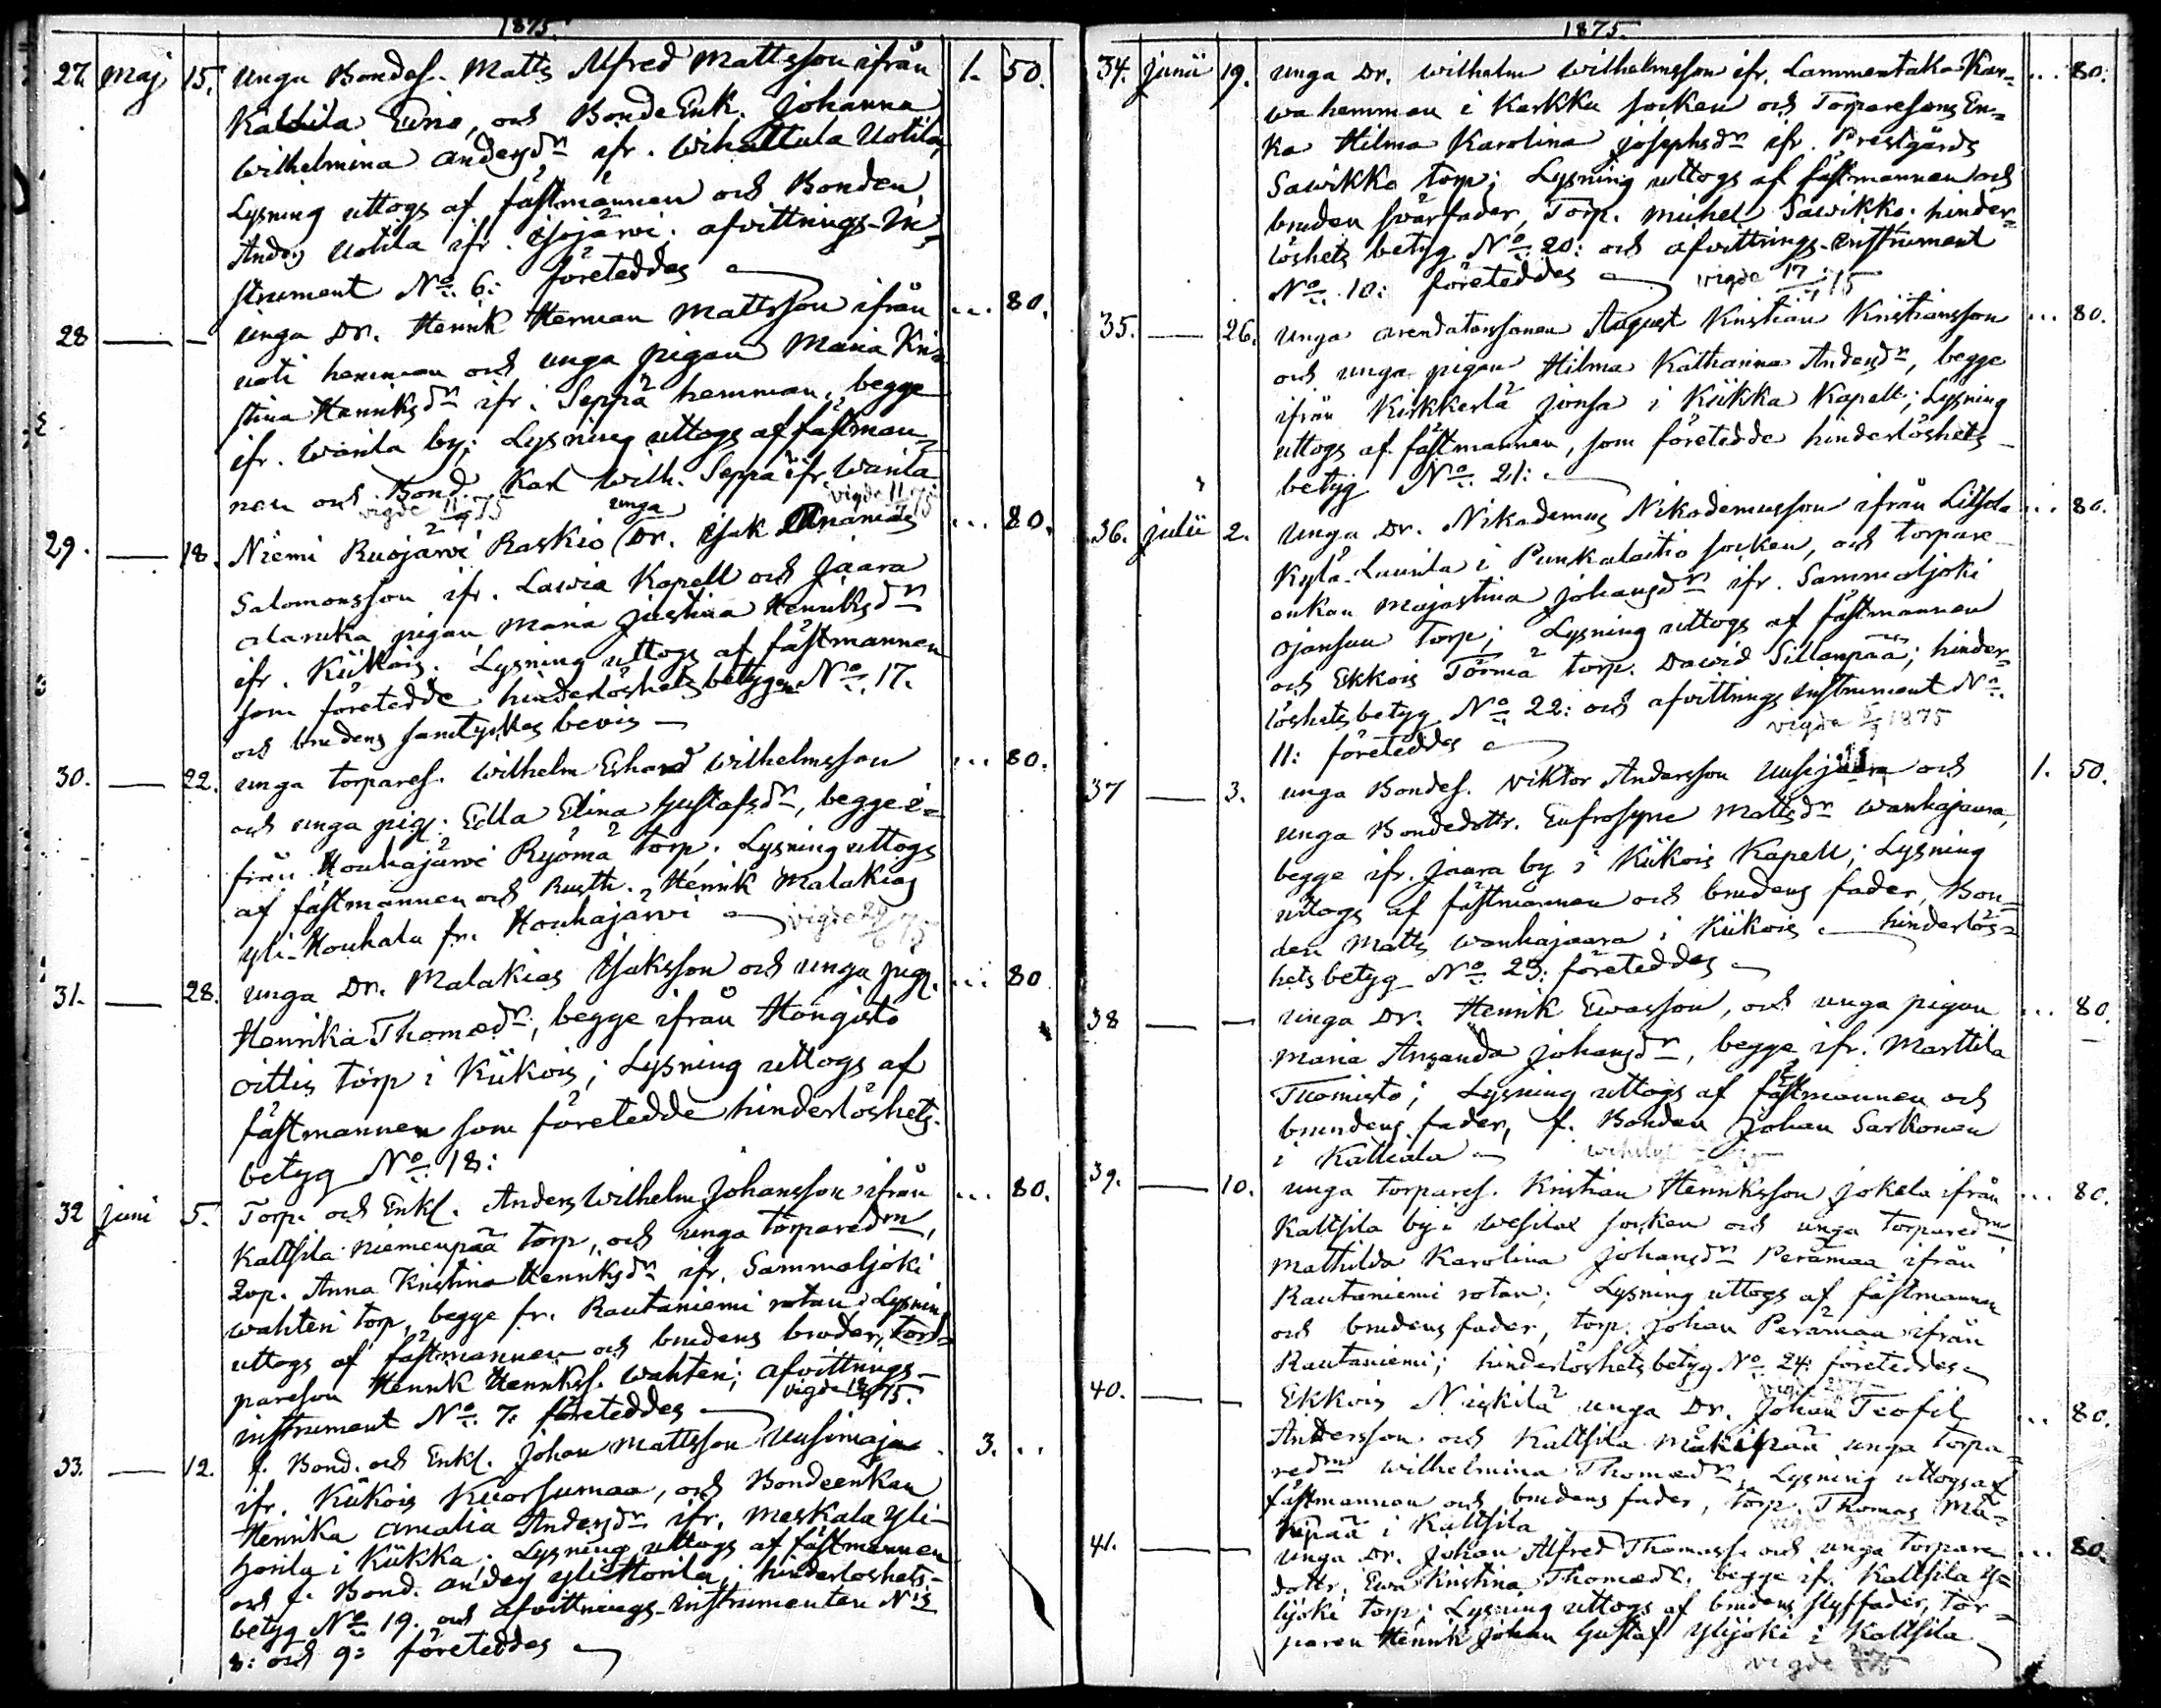 1875.
27. Maj 15. unga Bondes. Matts Alfred Mattsson ifrån 1. 50.
Kaltila Eino, och Bonde Enk. Johanna
Wilhelmina Andersdr ifr. Wihattula Uotila,
Lysning uttogs af fästmannen och Bonden
Anders Uotila ifr. afvittrings-In-
strument No 6: företeddes
28 — — unga Dr. Henrik Herman Mattsson ifrån ... 80.
uoti hemman och unga pigan Maria Kri-
stina Henriksdr ifr. Seppä hemman, begge
ifr. Wanila by; Lysning uttogs af fästman-
nen och Bond. Karl Wilh. Seppä ifr. Wanila
vigde 11/7 75
unga
29. — 18. Niemi Ruojärvi Raskio (Dr. Isak Ananias ... 80.
Salomonsson ifr. Lavia Kapell och Jaara
pigan Maria Justina Henriksdr
ifr. Kiikois. Lysning uttogs af fästmannen
som företedde hinderlöshetsbetyg No 17.
och brudens samtyckes bevis —
30. — 22. unga torpares. Wilhelm Erhard Wilhelmsson ... 80.
och unga pig. Edla Elina Gustafsdr, begge i-
från Houhajärvi Ryömä torp; Lysning uttogs
af fästmannen och Rusth. Henrik Malakias
Yli-Houhala fr. Houhajärvi vigde
31. — 28. unga Dr. Malakias Isaksson och unga pig. ... 80
Henrika Thomædr, begge ifrån Hangisto
Oittis torp i Kiikois; Lysning uttogs af
fästmannen som företedde hinderlöshets-
betyg No 18:
32 juni 5. Torp. och Enkl. Anders Wilhelm Johansson ifrån ... 80.
Kaltsila Niemenpää torp, och unga torparedr,
Anna Kristina Henriksdr ifr. Sammaljoki
Wahteri torp, begge fr. Rautaniemi rotan; Lysning
uttogs af fästmannen och brudens broder, Tor-
pareson Henrik Henrikss. Wahteri; afvittrings-
instrument No 7: företeddes — vigde
33. — 12. f. Bond. och Enkl. Johan Mattsson Uusimaja 3. ..
ifr. Kiikois Kuorsumaa, och Bondeenkan
Henrika Amalia Andersdr ifr. Meskala Yli-
Horila i Kiikka; Lysning uttogs af fästmannen
och f. Bond. Anders Yli-Horila; hinderlöshets-
betyg No 19. och afvittrings-Instrumenten No
8: och 9: företeddes —
1875.
34. Junii 19. unga Dr. Wilhelm Wilhelmsson ifr. Lammentaka Kar- ... 80.
wa hemman i Karkku socken och Torparesons En-
ka Hilma Karolina Josephsdr ifr. Prestgårds
Sawikko torp; Lysning uttogs af fästmannen och
bruden svärfader, Torp. Mickel Sawikko; hinder-
löshets betyg No 20: och afvittrings-Instrument
No 10: företeddes — vigde 17/7 75
35. — 26. unga arendatorssonen August Kristian Kristiansson ... 80.
och unga pigan Hilma Katharina Andersdr, begge
ifrån Kirkkerlä Jonsa i Kiikka Kapell; Lysning
uttogs af fästmannen, som företedde hinderlöshets-
betyg No 21:
36. Julii 2. unga Dr. Nikodemus Nikodemusson ifrån Liitsola ... 80.
Kylä-Laurila i Punkalaitio socken, och torpare
enkan Majastina Johansdr ifr. Sammaljoki
Ojansuu torp; Lysning uttogs af fästmannen
och Ekkois Törmä torp. Dawid Sillanpää; hinder-
löshetsbetyg No 22: och afvittrings instrument No
11: företeddes — vigde 1875
37 — 3. unga Bondes. Viktor Andersson Uusijaara och 1. 50.
unga Bondedottr. Eufrosyne Mattsdr Wanhajaara,
begge ifr. Jaara by i Kiikois Kapell; Lysning
uttogs af fästmannen och brudens fader, Bon-
den Matts Wanhajaara i Kiikois — hinderlös-
hets betyg No 23: företeddes —
38 — — unga Dr. Henrik Ewasson, och unga pigan ... 80.
Maria Amanda Johansdr, begge ifr. Marttila
Tuomisto; Lysning uttogs af fästmannen och
brudens fader, f. Bonden Johan Sarkonen
i Kalliala —
39. — 10. unga torpares. Kristian Henriksson Jokela ifrån ... 80.
Kaltsila by i Wesilax socken och unga torparedr
Mathilda Karolina Johansdr Perämaa ifrån
Rautaniemi rotan; Lysning uttogs af fästmannen
och brudens fader, torp. Johan Perämaa ifrån
Rautaniemi; hinderlöshets betyg No 24: företeddes —
40. — — Ekkois Niskilä unga Dr. Johan Teofil ... 80.
Andersson och Kaltsila Mäkipää unga torpa-
redr Wilhelmina Thomædr, Lysning uttogs af
fästmannen och brudens fader, torp. Thomas Mä-
kipää i Kaltsila
41. — — unga Dr. Johan Alfred Thomass. och unga Torpare ... 80.
dottr. Ewa Kristina Thomædr, begge if. Kaltsila Y-
lijoki torp; Lysning uttogs af brudens styffader, tor-
paren Henrik Johan Gustaf Ylijoki i Kaltsila
vigde